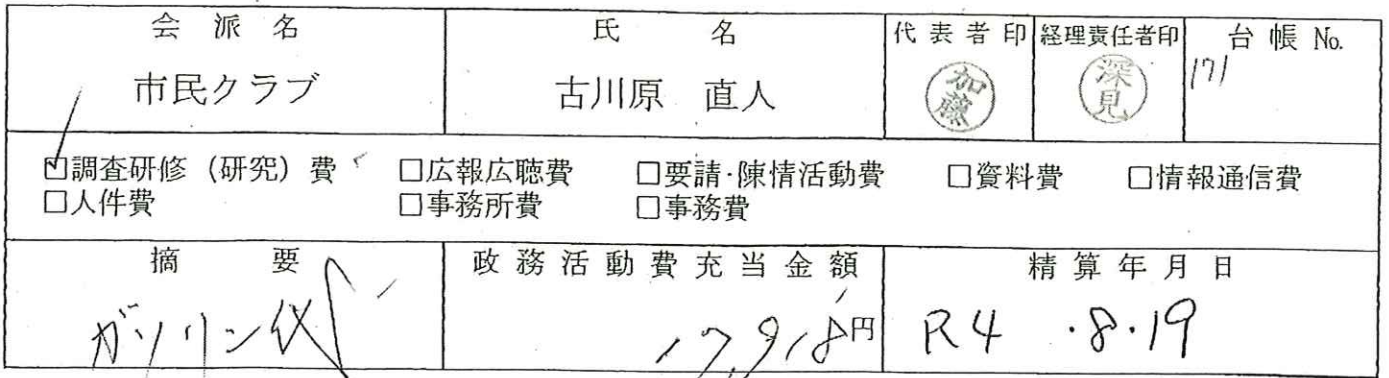 会派名 氏名 代表者印 経理責任者印 台帳 No.
市民クラブ 古川原 直人 加藤 深見 171
☑調査研修（研究）費 □広報広聴費 □要請・陳情活動費 □資料費 □情報通信費
□人件費 □事務所費 □事務費
摘要 政務活動費充当金額 精算年月日
ガソリン代 円 R4.8.19